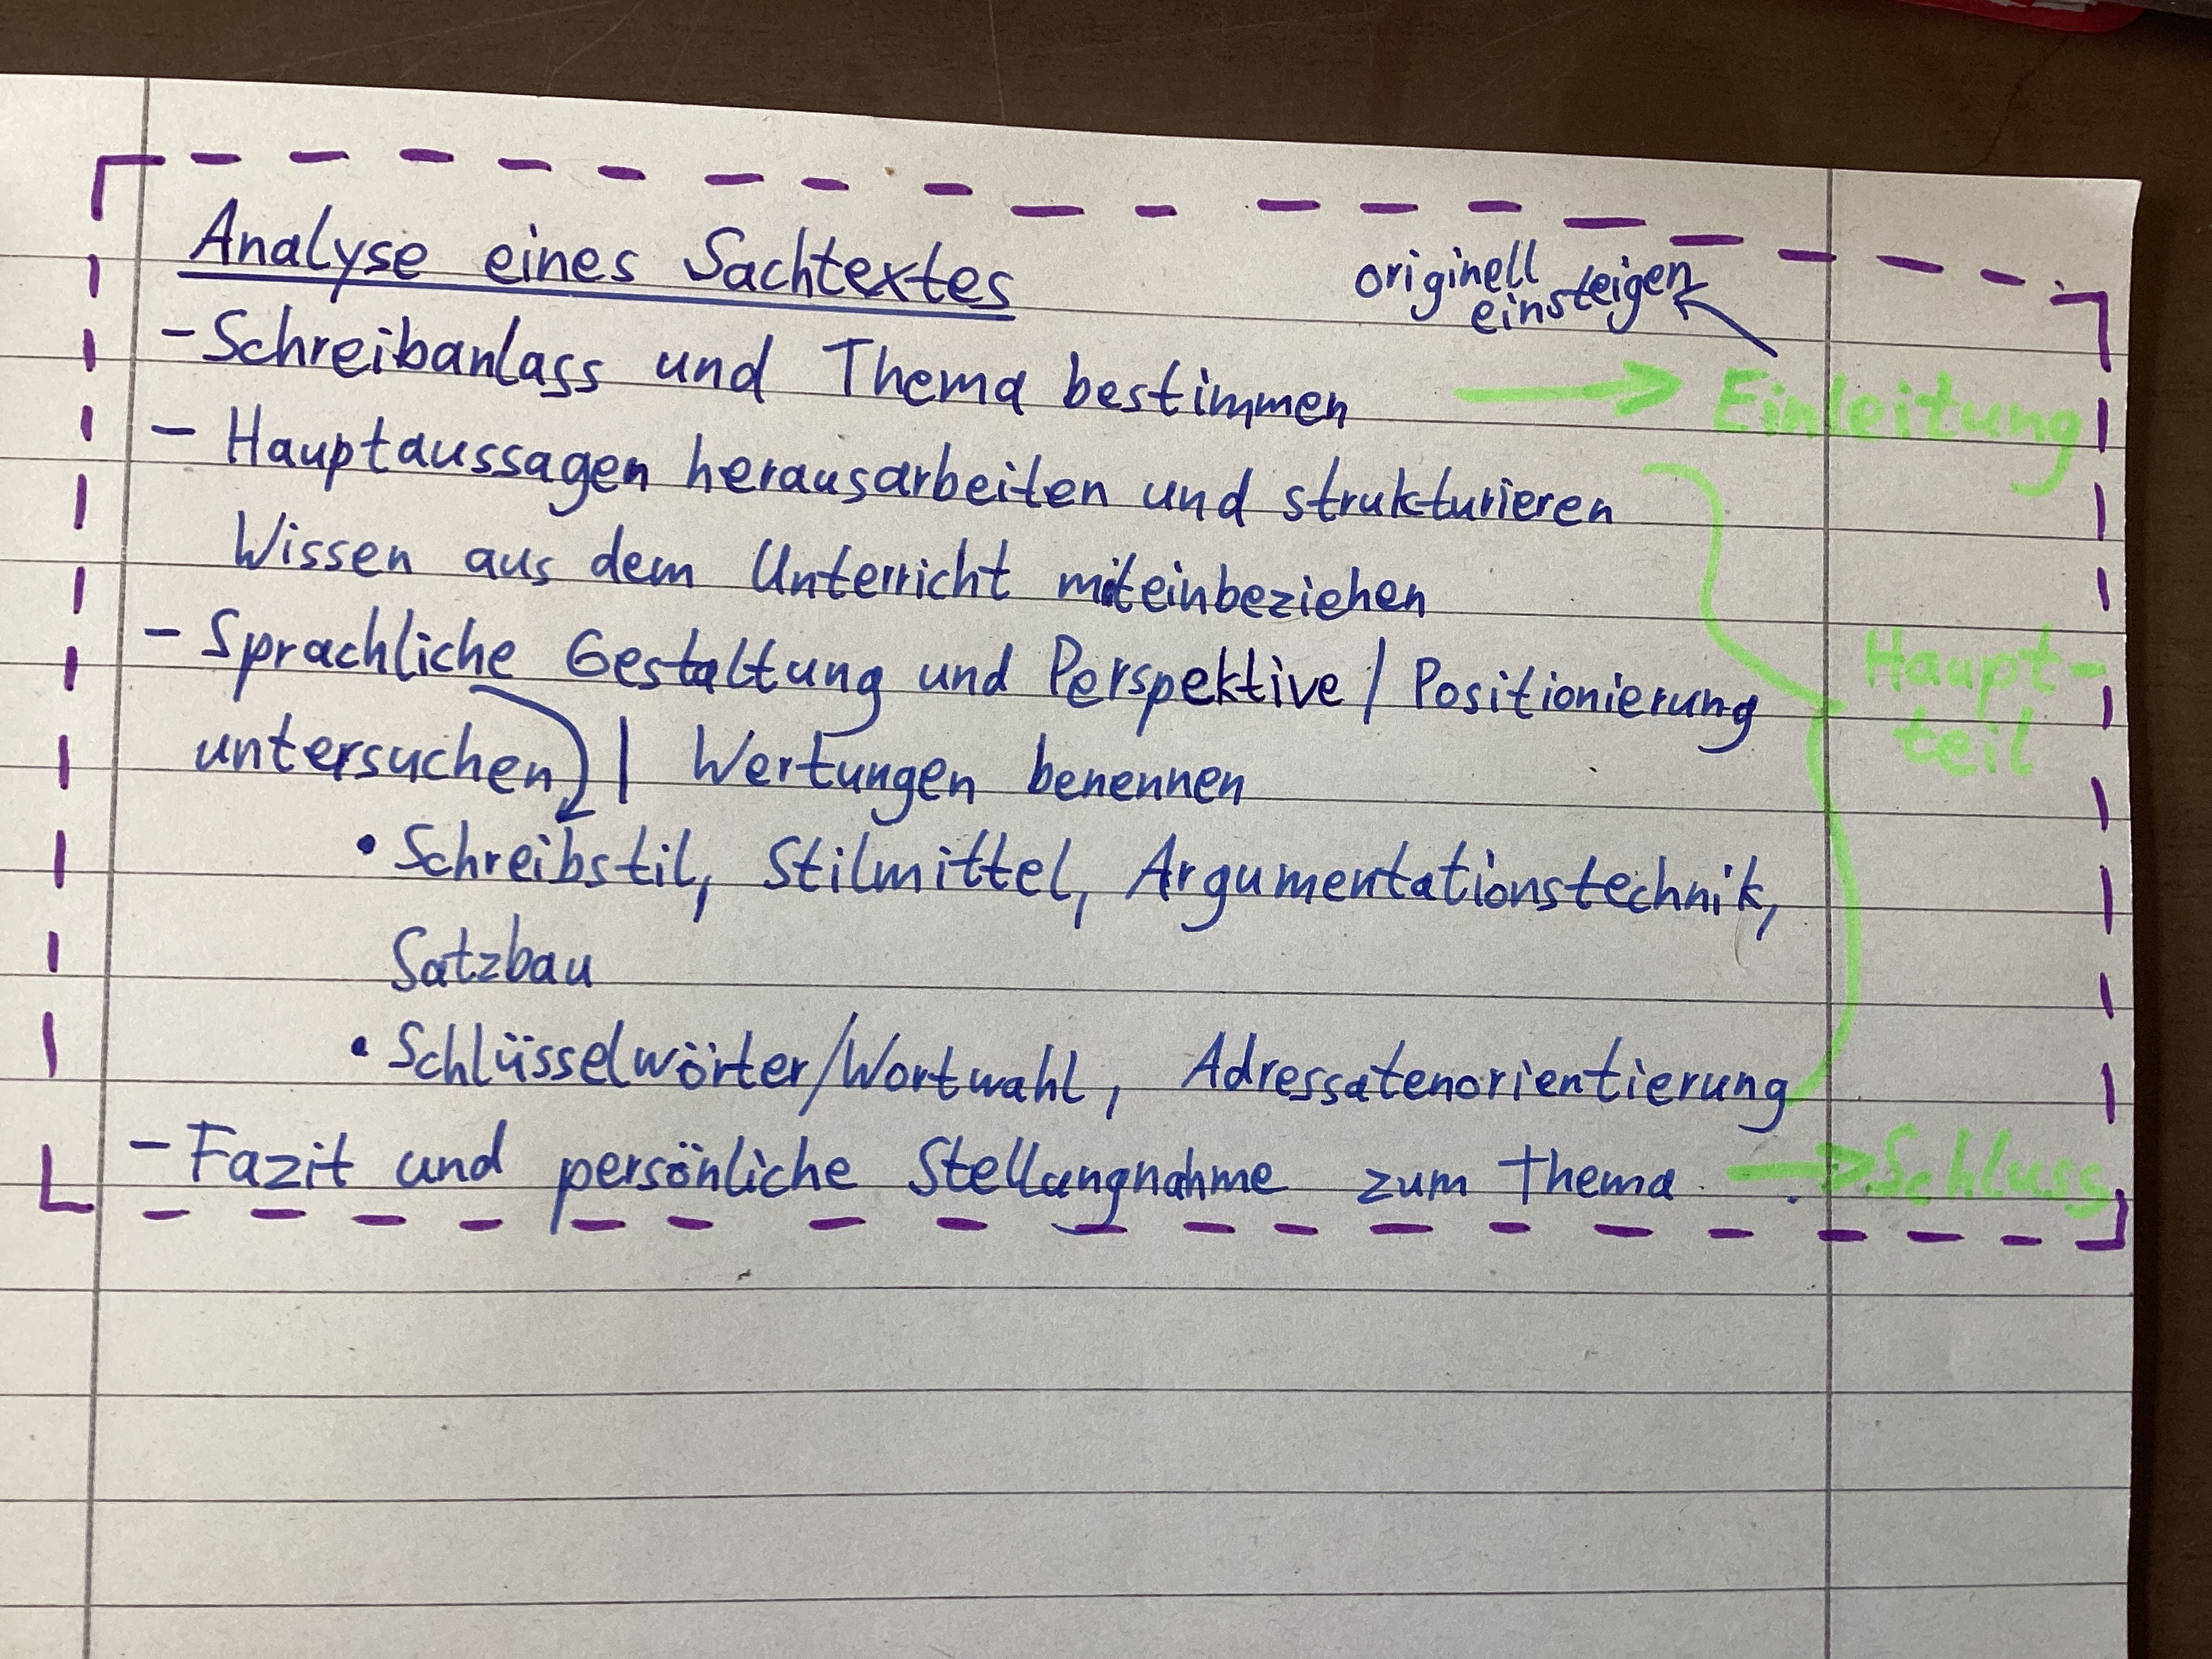 Analyse eines Sachtextes
originell
einsteigen
- Schreibanlass und Thema bestimmen → Einleitung
- Hauptaussagen herausarbeiten und strukturieren
Wissen aus dem Unterricht miteinbeziehen
- Sprachliche Gestaltung und Perspektive / Positionierung
Haupt-
teil
untersuchen | Wertungen benennen
• Schreibstil, Stilmittel, Argumentationstechnik,
Satzbau
• Schlüsselwörter/Wortwahl, Adressatenorientierung
- Fazit und persönliche Stellungnahme zum Thema → Schluss